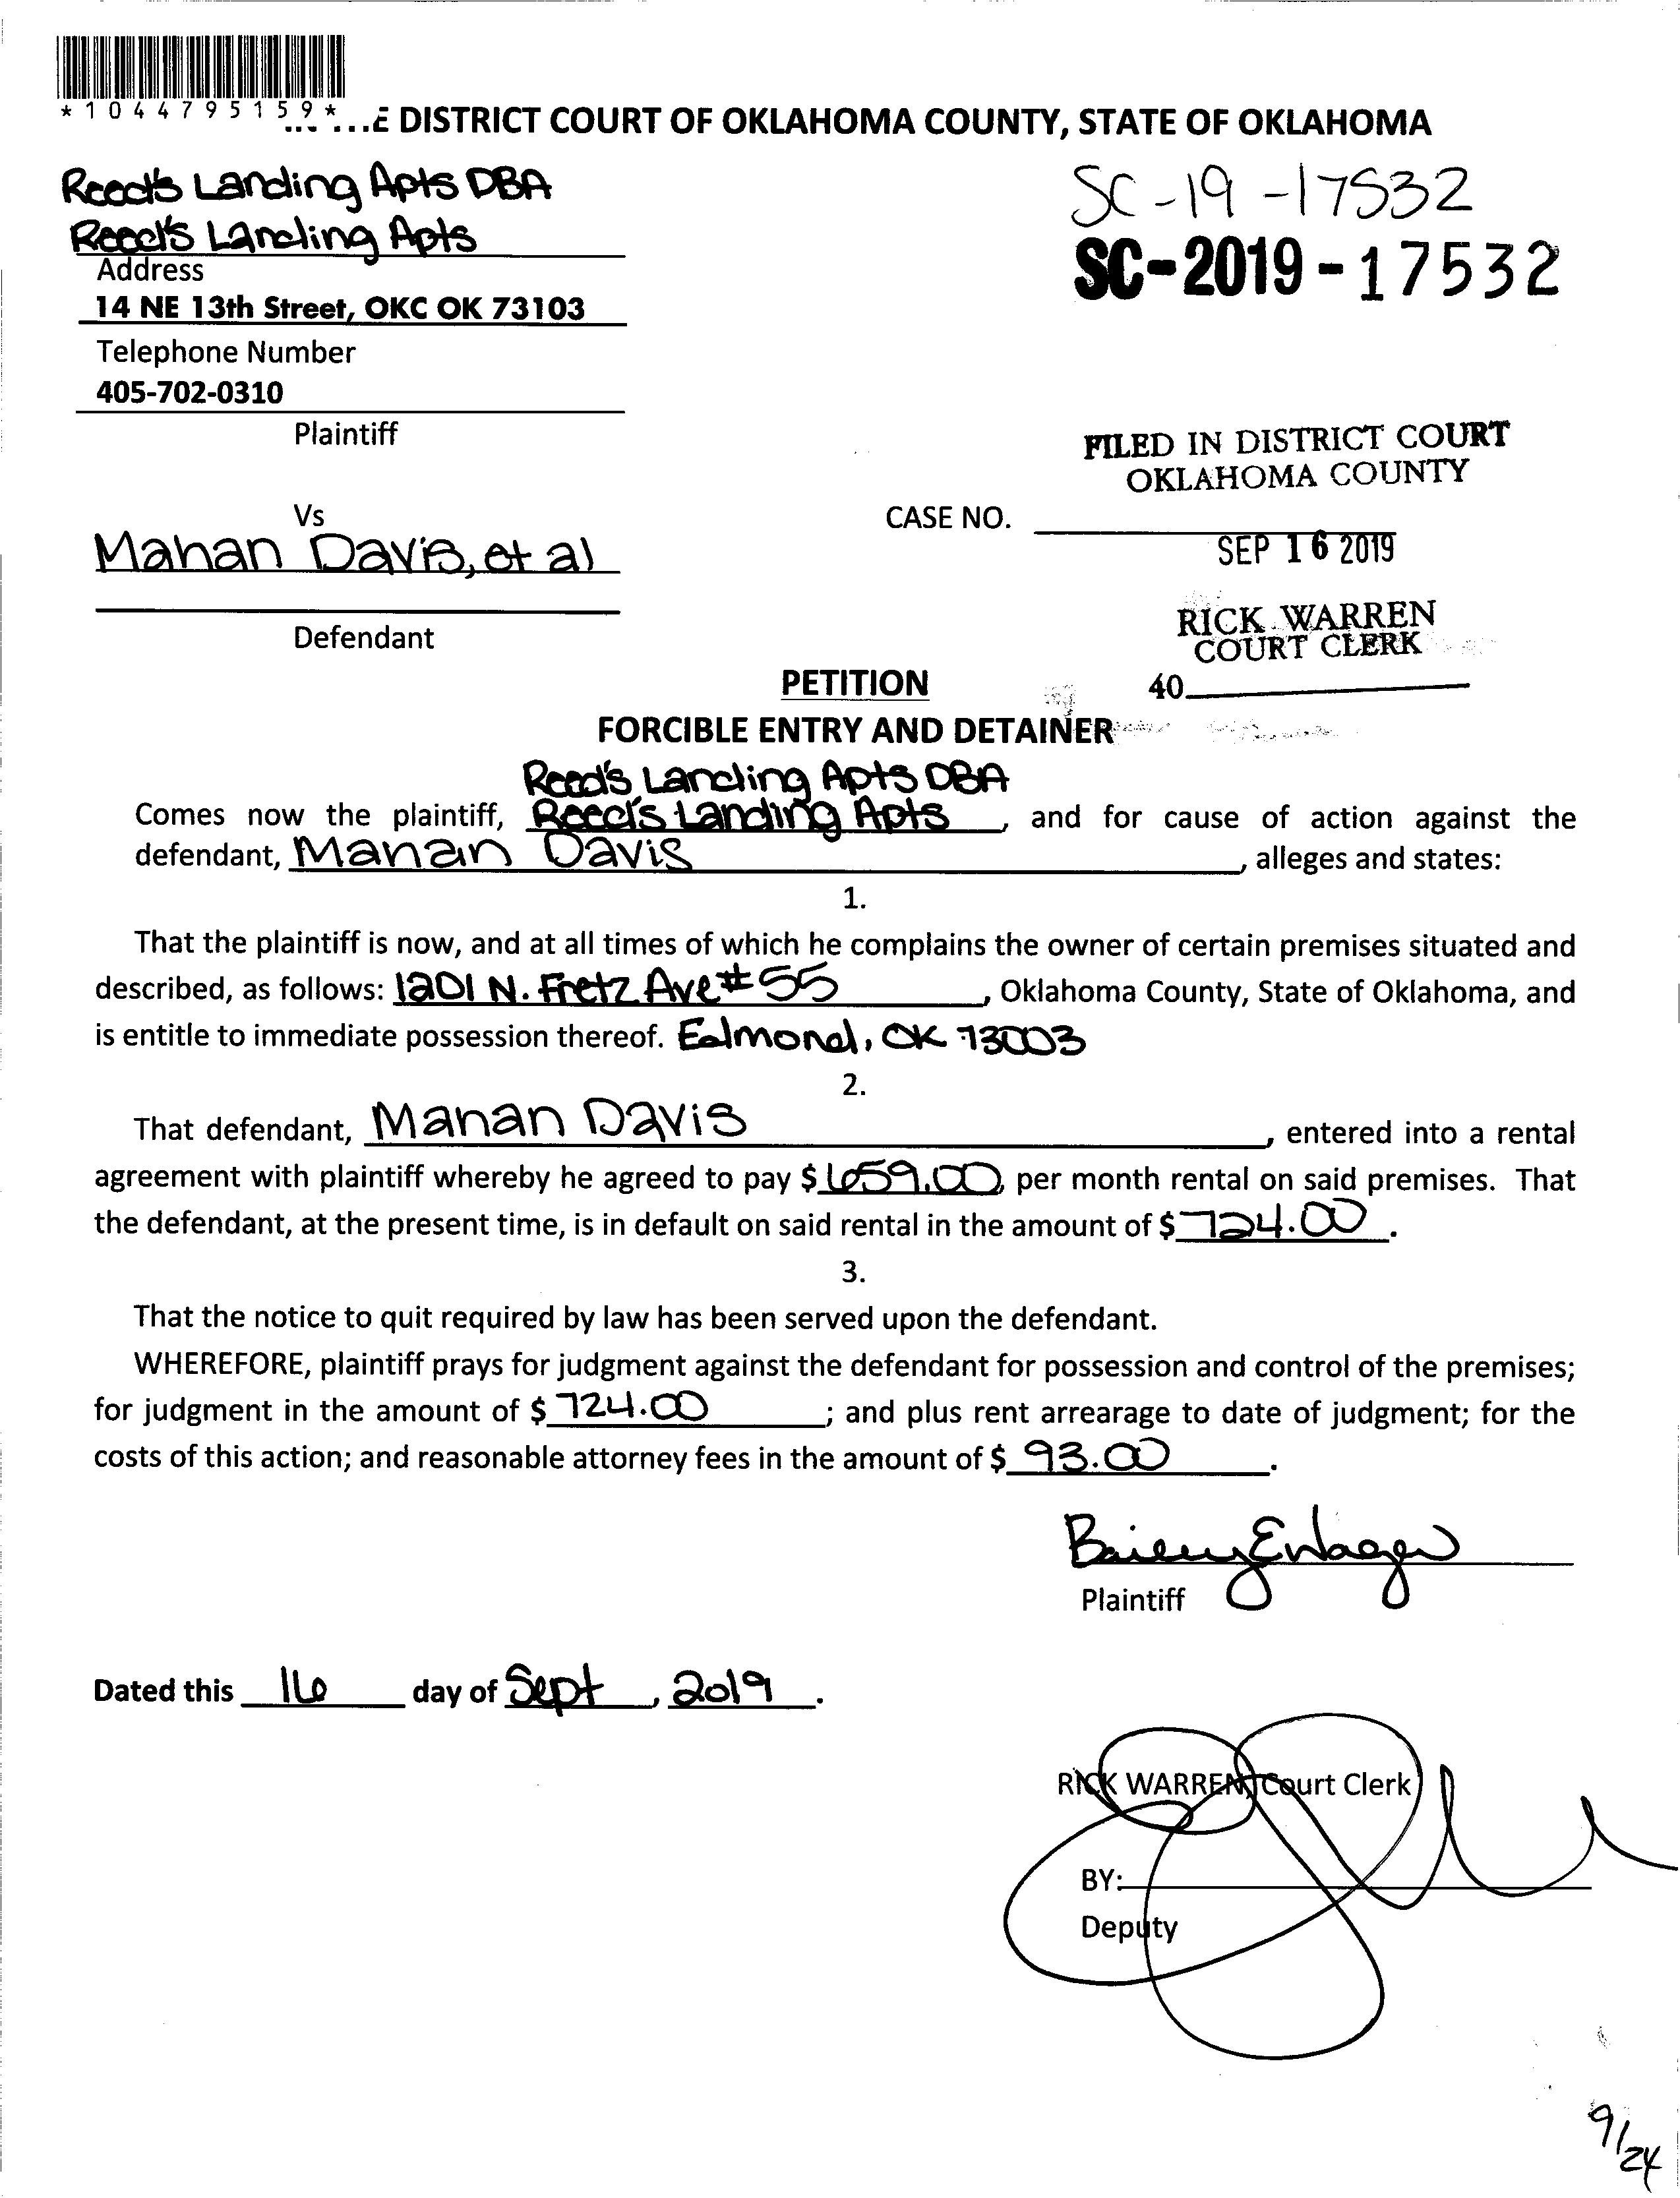 *1044795159*
E DISTRICT COURT OF OKLAHOMA COUNTY, STATE OF OKLAHOMA
Reed's Landing Apts DBA
Reed's Landing Apts
SC-19-17532
SC-2019-17532
Address
14 NE 13th Street, OKC OK 73103
Telephone Number
405-702-0310
Plaintiff
FILED IN DISTRICT COURT
OKLAHOMA COUNTY
Vs
CASE NO.
Mahan Davis, et al
SEP 16 2019
Defendant
RICK WARREN
COURT CLERK
PETITION
40
FORCIBLE ENTRY AND DETAINER
Reed's Landing Apts DBA
Comes now the plaintiff, Reed's Landing Apts, and for cause of action against the
defendant, Mahan Davis, alleges and states:
1.
That the plaintiff is now, and at all times of which he complains the owner of certain premises situated and
described, as follows: 1201 N. Fretz Ave #55, Oklahoma County, State of Oklahoma, and
is entitle to immediate possession thereof. Edmond, OK 73003
2.
That defendant, Mahan Davis, entered into a rental
agreement with plaintiff whereby he agreed to pay $659.00, per month rental on said premises. That
the defendant, at the present time, is in default on said rental in the amount of $724.00.
3.
That the notice to quit required by law has been served upon the defendant.
WHEREFORE, plaintiff prays for judgment against the defendant for possession and control of the premises;
for judgment in the amount of $724.00; and plus rent arrearage to date of judgment; for the
costs of this action; and reasonable attorney fees in the amount of $93.00.
Plaintiff
Dated this 16 day of Sept, 2019.
RICK WARREN, Court Clerk
BY:
Deputy
9/24